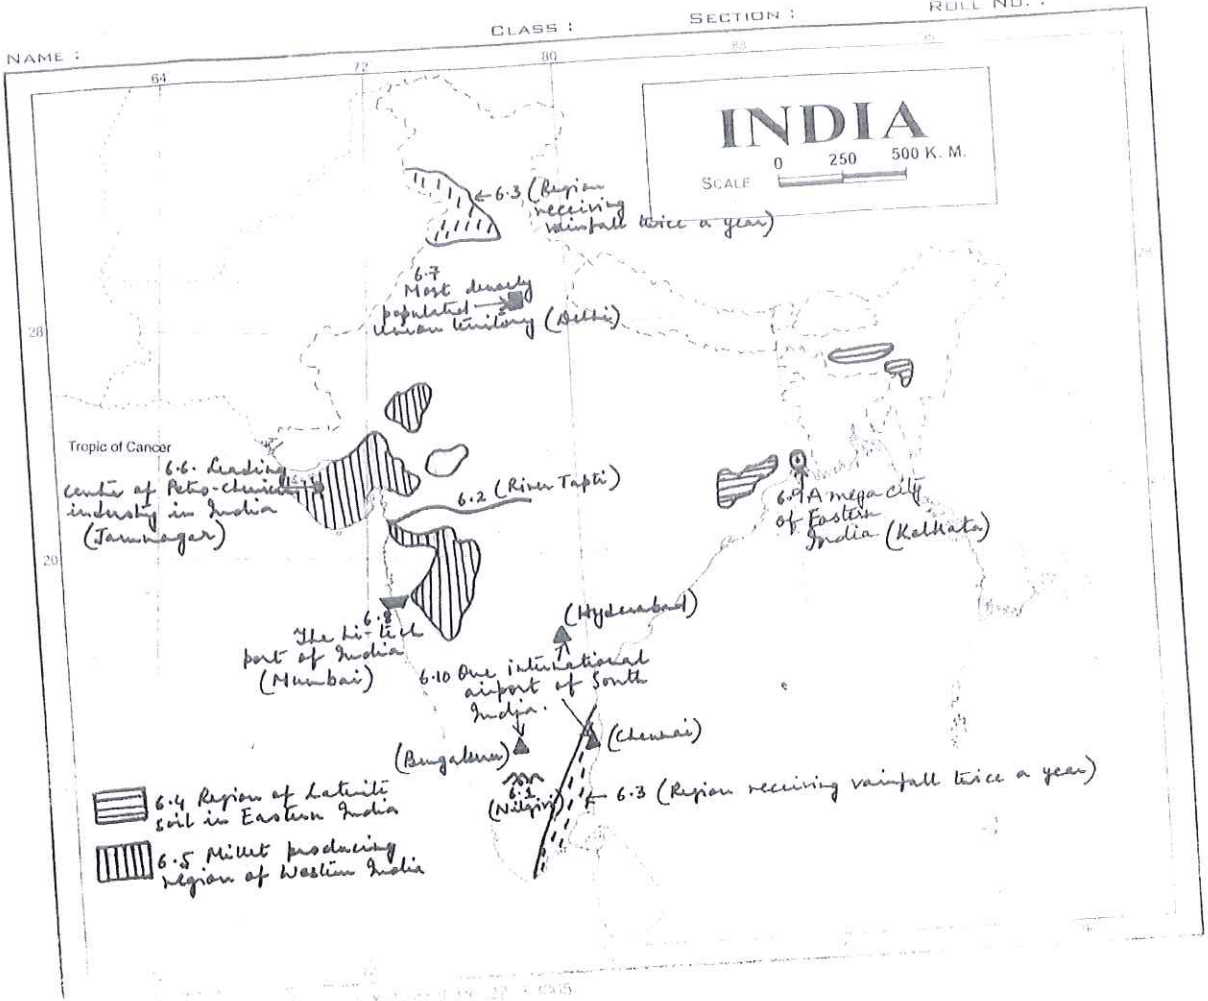 NAME :
CLASS :
SECTION :
ROLL NO. :
64
72
80
88
INDIA
0 250 500 K. M.
SCALE
6.3 (Region
receiving
rainfall twice a year)
6.7
Most densely
populated
Union territory (Delhi)
28
Tropic of Cancer
6.6. Leading
center of Petro-chemical
industry in India
(Jamnagar)
6.2 (River Tapti)
6.9 A mega city
of Eastern
India (Kolkata)
20
6.8
The hi-tech
port of India
(Mumbai)
(Hyderabad)
6.10 One international
airport of South
India.
(Bengaluru)
(Chennai)
6.1
(Nilgiri)
6.3 (Region receiving rainfall twice a year)
6.4 Region of Laterite
soil in Eastern India
6.5 Millet producing
region of Western India